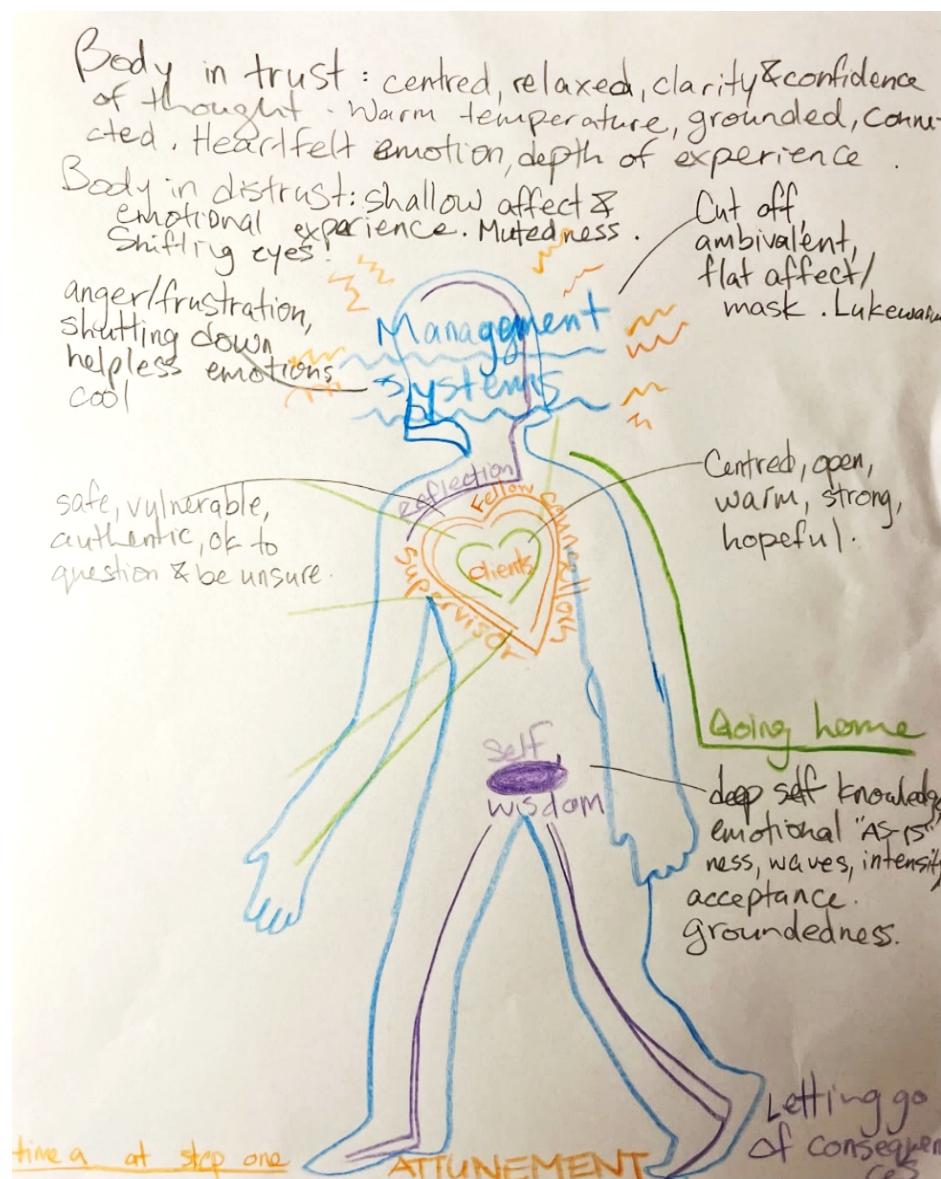 Body in trust: centred, relaxed, clarity & confidence
of thought. Warm temperature, grounded, conne-
cted. Heartfelt emotion, depth of experience.
Body in distrust: shallow affect &
emotional experience. Mutedness.
Shifting eyes!
Cut off,
ambivalent,
flat affect/
mask. Lukewarm
anger/frustration,
shutting down
helpless emotions
cool
Management
systems
reflection
Fellow Counsellors
Supervisor
clients
Centred, open,
warm, strong,
hopeful.
safe, vulnerable,
authentic, ok to
question & be unsure.
Going home
Self
wisdom
deep self knowledge,
emotional "AS-IS"
ness, waves, intensity
acceptance.
groundedness.
Letting go
of consequen
ces
time a at step one
ATTUNEMENT